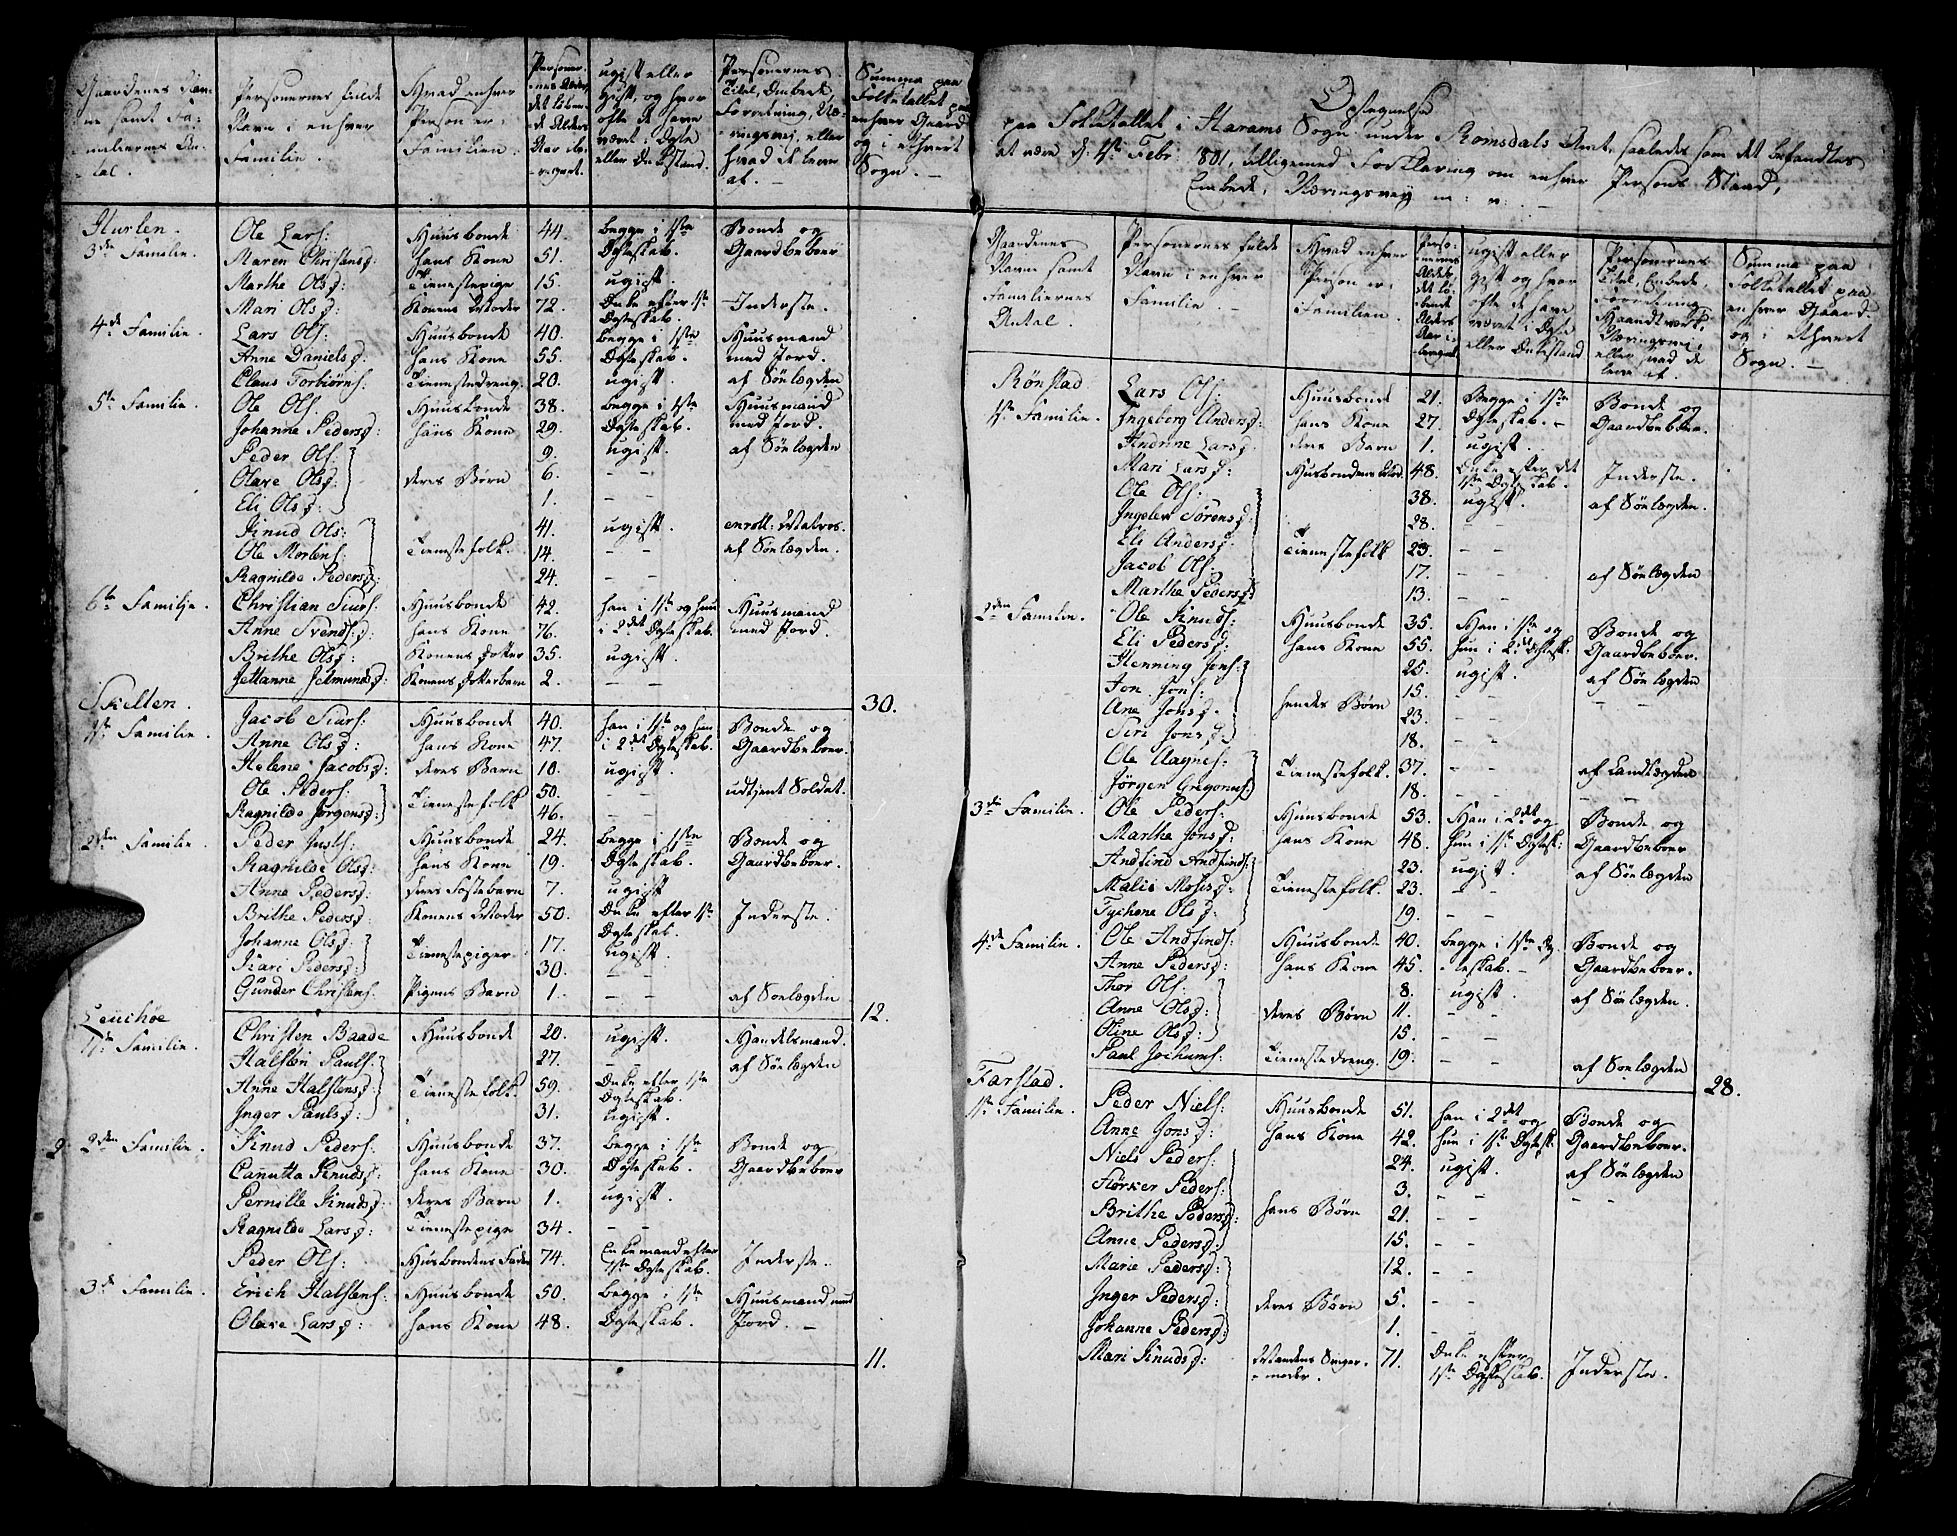 Gaardenes Nav-
ne samt Fa-
miliernes An-
tal.
Personernes fulde
Navn i enhver
Familie.
Hvad enhver
Person er i
Familien.
Personer-
nes Alder,
det löben-
de Alders
Aar ibe-
regnet.
ugift eller
gift, og hvor
ofte de have
været i Ægte
eller Enkestand.
Personernes
Titel, Embede,
Forretning, Næ-
ringsvei, eller
hvad de leve
af. –
Summa paa
Folketallet paa
enhver Gaard
og i ethvert
Sogn. –
Hurlen.
3die Familie. Ole Lars: Huusbonde 44. begge i 1ste Bonde og
Maren Christensd: hans Kone 51. Ægteskab. Gaardbeboer
Marthe Olsd: Tienestepige 15. ugift.
Mari Olsd: Konens Moder 72. Enke efter 1ste Ægteskab. Inderste.
4de Familie. Lars Ols: Huusbonde 40. begge i 1ste Huusmand
Anne Danielsd: hans Kone 55. Ægteskab. med Jord.
Claus Torbiörns: Tienestedreng. 20. ugift. af Söelægden
5te Familie. Ole Ols: Huusbonde 38. begge i 1ste Huusmand
Johanne Pedersd: hans Kone 29. Ægteskab. med Jord.
Peder Ols: 9. ugift. af Söelægden
Olave Olsd: deres Börn 6. – –
Eli Olsd: 1. – –
Knud Ols: 41. ugift. enroll: Matros.
Ole Mortens: Tienestefolk. 14. – – af Söelægden.
Ragnilde Pedersd: 24. – –
6te Familie. Christian Siurs: Huusbonde 42. han i 1ste og hun Huusmand
Anne Svendsd: hans Kone 76. i 2det Ægteskab. med Jord.
Brithe Olsd: Konens Datter 35. ugift.
Jettanne Jetmundsd: Konens Datterbarn 2. – –
30.
Skelten.
1ste Familie. Jacob Siurs: Huusbonde 40. han i 1ste og hun Bonde og
Anne Olsd: hans Kone 47. i 2det Ægteskab. Gaardbeboer.
Helene Jacobsd: deres Barn 10. ugift.
Ole Peders: Tienestefolk 50. – – udtjent Soldat.
Ragnilde Jörgensd: 46. – –
2den Familie. Peder Justs: Huusbonde 24. begge i 1ste Bonde og
Ragnilde Olsd: hans Kone 19. Ægteskab. Gaardbeboer.
Anne Pedersd: deres Fosterbarn 7. ugift
Brithe Pedersd: Konens Moder 50. Enke efter 1ste Ægteskab. Inderste.
Johanne Olsd: Tienestepiger 17. ugift.
Kari Pedersd: 30. – –
Gunder Christens. Pigens Barn 1. – – af Söelægden
12.
1ste Familie. Christen Baade Huusbonde 20. ugift. Handelsmand.
Halsten Pauls: 27. – – af Söelægden
Anne Halstensd: Tienestefolk. 59. Enke efter 1ste Ægteskab.
Inger Paulsd: 31. ugift.
2den Familie. Knud Peders: Huusbonde 37. begge i 1ste Bonde og
Canutta Knudsd: hans Kone 30. Ægteskab. Gaardbeboer
Pernille Knudsd: deres Barn 1. ugift.
Ragnilde Larsd: Tienestepige 34. – –
Peder Ols: Husbondens Fader 74. Enkemand efter 1ste Ægteskab. Inderste.
3de Familie. Erich Halstens: Huusbonde 50. begge i 1ste Huusmand med
Olave Larsd: hans Kone 48. Ægteskab. Jord. –
11.
Optegnelse
paa Folketallet i Harams Sogn under Romsdals Amt, saaledes som det befandtes
at være d. 1ste Febr: 1801, tilligemed Forklaring om enhver Persons Stand,
Embede, Næringsvey m: v: –
Gaardenes
Navne samt
Familiernes
Antal.
Personernes fulde
Navn i enhver
Familie. –
Hvad enhver
Person er i
Familien.
Perso-
nernes
Alder,
det lö-
bende
Alders
Aar i-
beregnet
ugift eller
gift og hvor
ofte de have
været i Ægte
eller Enkestand
Personernes
Titel, Embede,
Forretning
Haandtverk,
Næringsvei,
eller hvad de
leve af.
Summa paa
Folketallet paa
enhver Gaard
og i ethvert
Sogn. –
Rönstad
1ste Familie. Lars Ols: Huusbonde 21. Begge i 1ste Bonde og
Ingeborg Andersd: hans Kone 27. Ægteskab. – Gaardbeboer.
Andrine Larsd: deres Barn 1. ugift.
Mari Larsd: Husbondens Mod. 48. Enke efter det 1ste Ægteskab. Inderste.
Ole Ols: 38. ugift. af Söelægden.
Ingelev Sörensd: 28. –
Eli Andersd: Tienestefolk 23. – –
Jacob Ols: 17. – – af Söelægden
Marthe Pedersd: 13. – –
2den Familie. Ole Knuds: Huusbonde 35. Han i 1ste og Bonde og
Eli Pedersd: hans Kone 55. hun i 2det Ægtesk. Gaardbeboer.
Henning Jons: 25. ugift. af Söelægden
Jon Jons: 15. – – – –
Ane Jonsd: hendes Börn 23. – –
Siri Jonsd: 18. – –
Ole Aagnes: Tienestefolk. 37. – – af Landlægden
Jörgen Gregorius: 18. – – – –
3die Familie. Ole Peders: Huusbonde 53. Han i 2det og Bonde og
Marthe Jonsd: hans Kone 48. hun i 1ste Ægtesk: Gaardbeboer
Andfind Andfinds: 23. ugift. af Söelægden
Malie Mosisd: Tienestefolk. 23. –
Tychone Olsd: 19. – –
4de Familie. Ole Andfinds: Huusbonde 40. begge i 1ste Æg- Bonde og
Anne Pedersd: hans Kone 45. teskab. – Gaardbeboer.
Thor Ols: 8. ugift. af Söelægden.
Anne Olsd: deres Börn 11. – –
Oline Olsd: 15. – –
Paul Jochums: Tienestedreng. 19. – – af Söelægden
28.
Farstad.
1ste Familie. Peder Niels: Huusbonde 51. han i 2det og Bonde og
Anne Jonsd: hans Kone 42. hun i 1ste Ægtesk: Gaardbeboer.
Niels Peders: 24. ugift. af Söelægden
Störker Peders: 3. – – – –
Brithe Pedersd: hans Börn 21. – –
Anne Pedersd: 15. – –
Marie Pedersd: 12. – –
Inger Pedersd: deres Börn 5. – –
Johanne Pedersd: 1. – –
Mari Knudsd: Mandens Svigermoder. 71. Enke efter 1ste Ægteskab. Inderste.